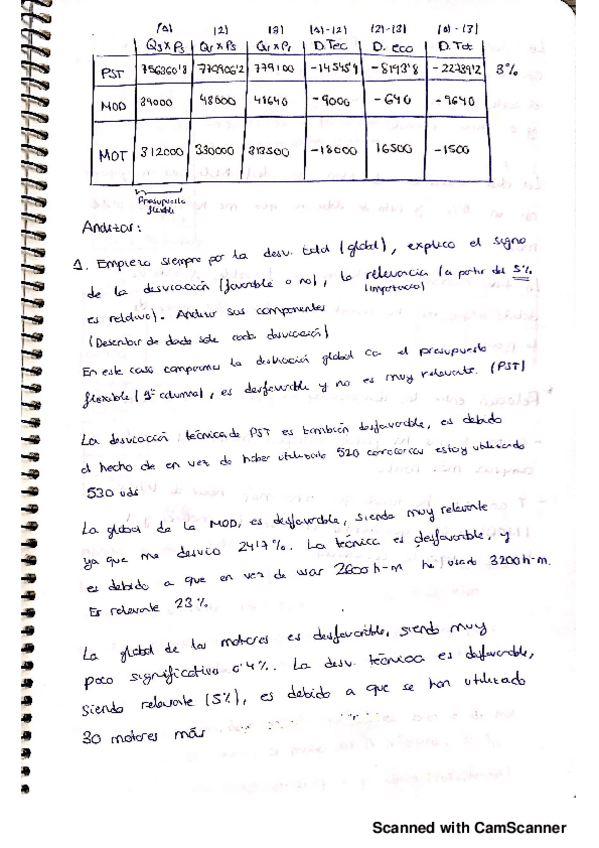 (1) (2) (3) (1)-(2) (2)-(3) (1)-(3)
Qs x Ps Qr x Ps Qr x Pr D. Tec D. eco D. Tot
PST 756360'8 770906'2 779100 -14545'4 -8193'8 -22739'2 3%
MOD 39000 48000 48640 -9000 -640 -9640
MOT 312000 330000 313500 -18000 16500 -1500
Presupuesto
flexible
Analizar:
1. Empiezo siempre por la desv. total (global), explico el signo
de la desviación (favorable o no), la relevancia (a partir del 5%
(importancia)
es relativo). Analizar sus componentes
(Describir de donde sale cada desviación)
En este caso comparamos la desviación global con el presupuesto
flexible (1ª columna), es desfavorable y no es muy relevante. (PST)
La desviación técnica de PST es también desfavorable, es debido
al hecho de en vez de haber utilizado 520 carrocerías estoy utilizando
530 uds
La global de la MOD, es desfavorable, siendo muy relevante
ya que me desvío 24'7%. La técnica es desfavorable, y
es debido a que en vez de usar 2600 h-m he usado 3200 h-m.
Es relevante 23%
La global de los motores es desfavorable, siendo muy
poco significativa 0'4%. La desv. técnica es desfavorable,
siendo relevante (5%), es debido a que se han utilizado
30 motores más
Scanned with CamScanner